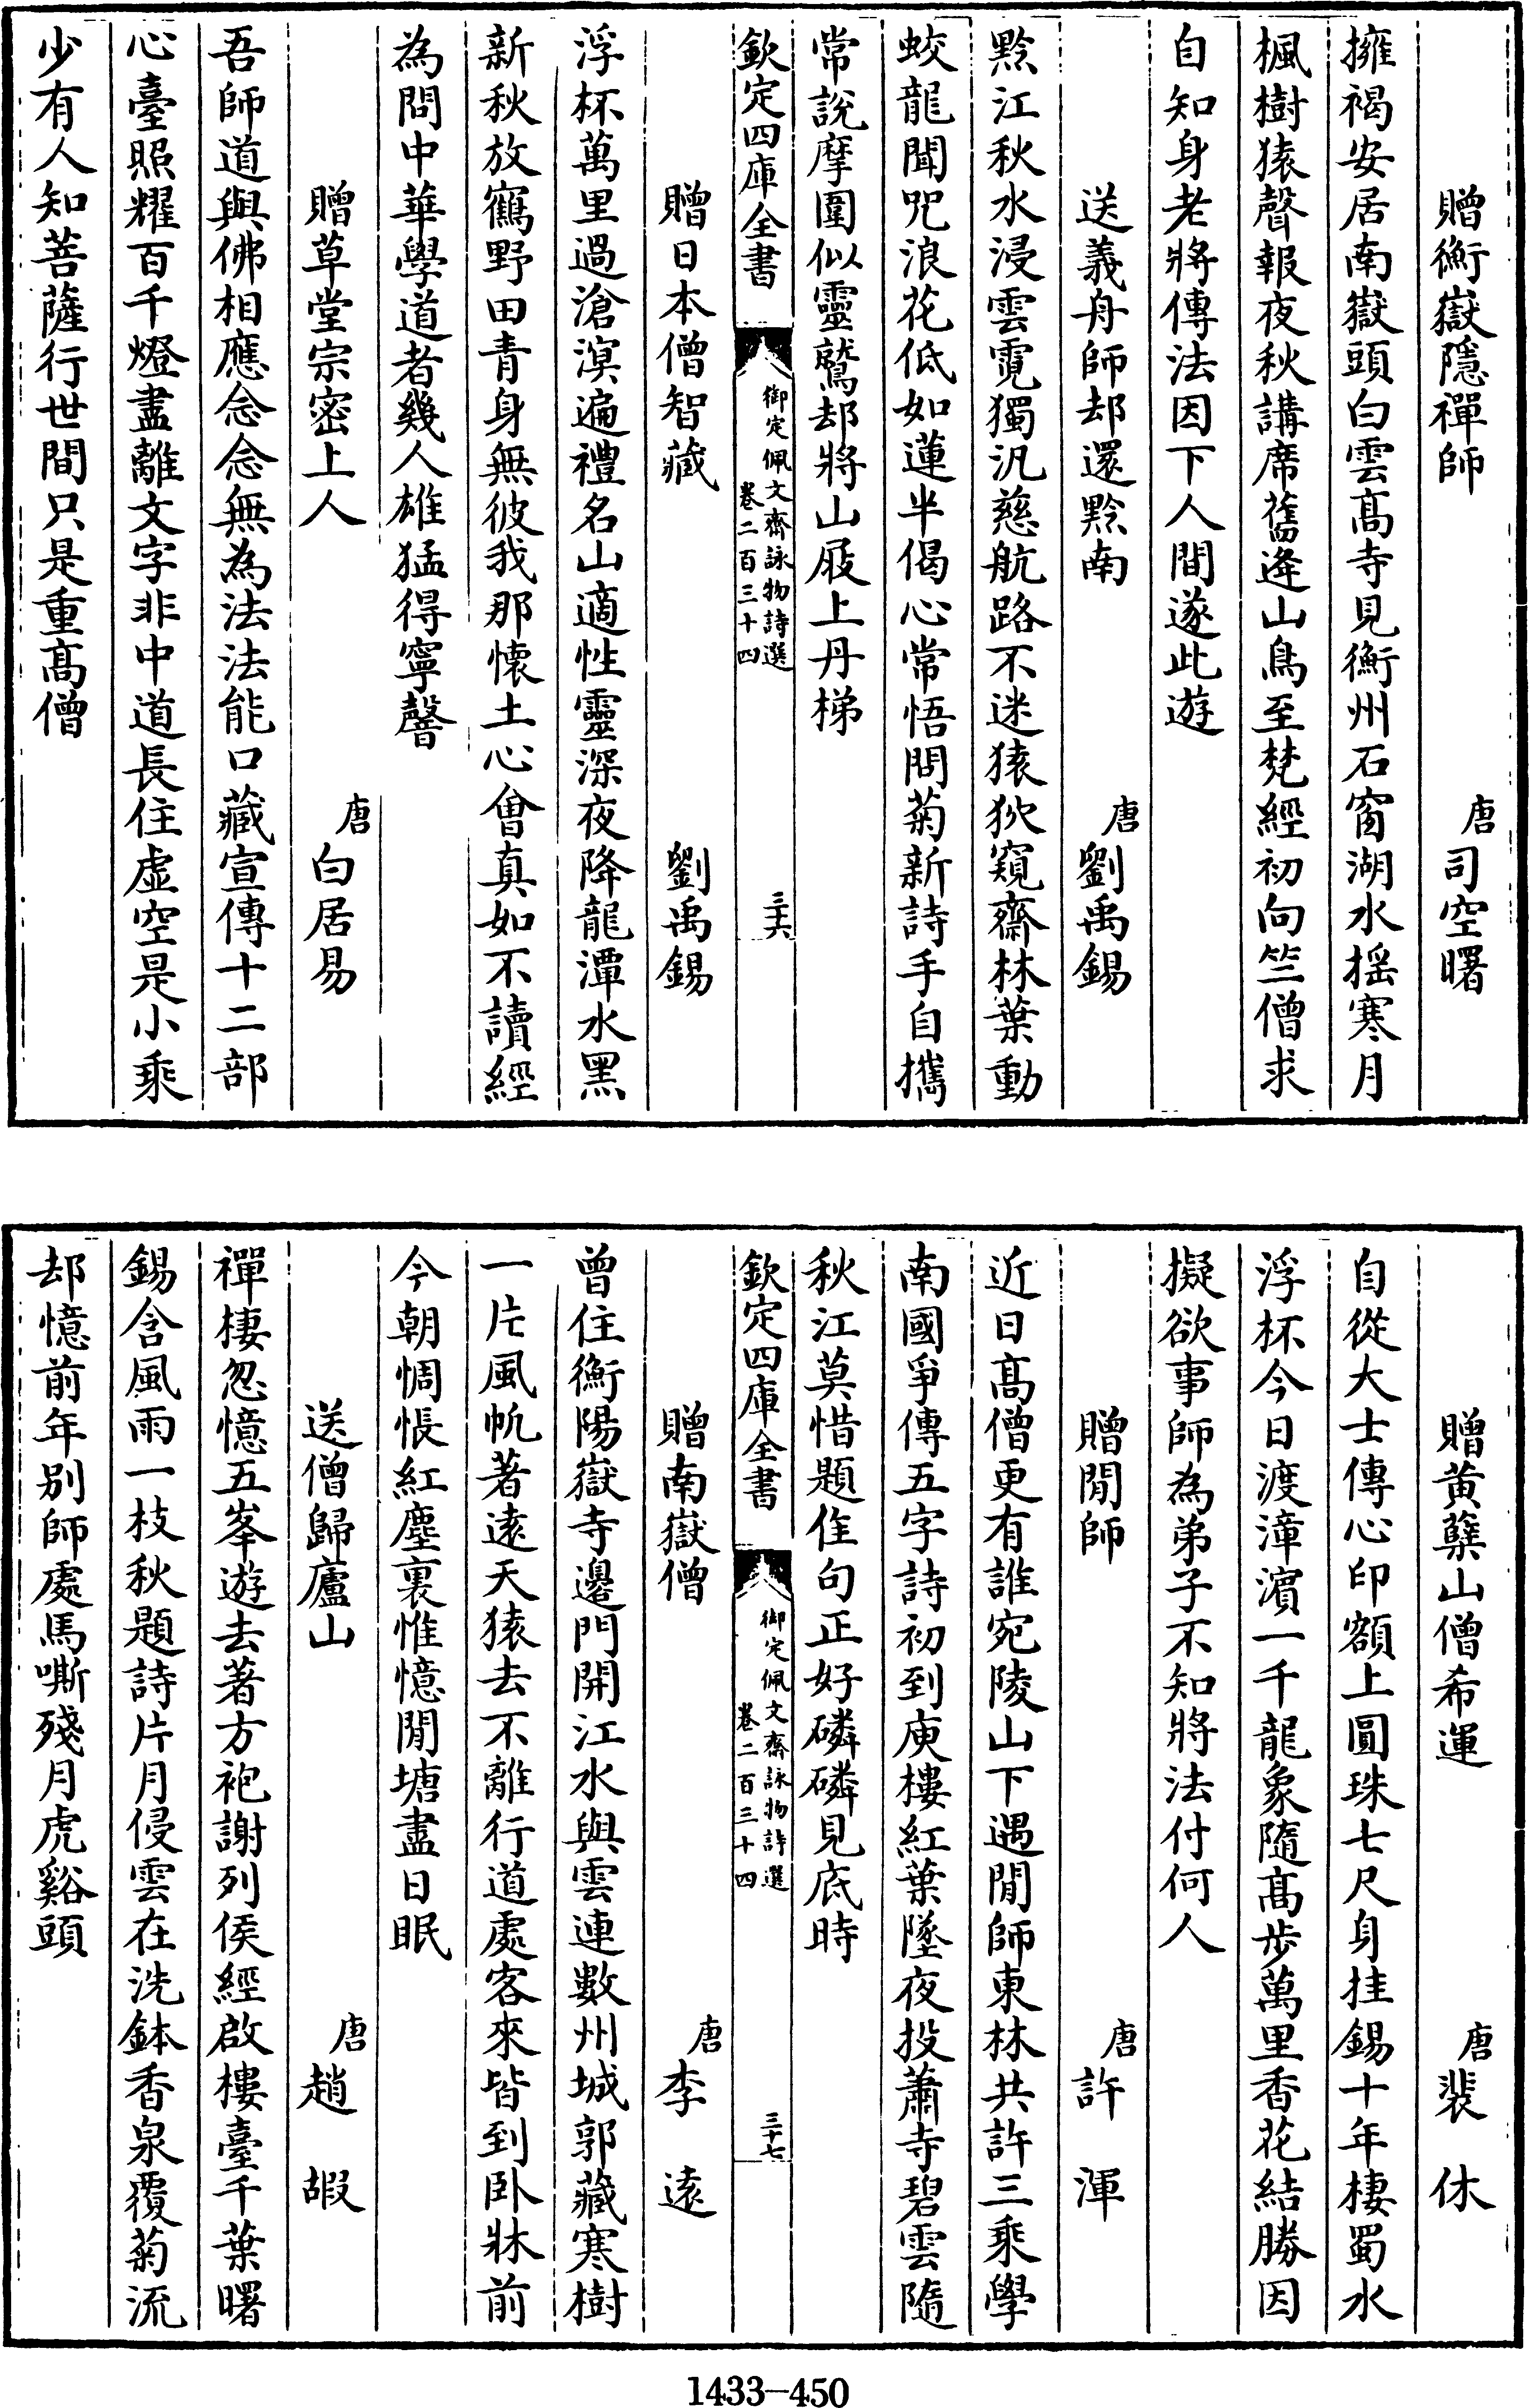 贈衡嶽隱禪師　唐司空曙
擁褐安居南嶽頭白雲髙寺見衡州石窗湖水揺寒月
楓樹猿聲報夜秋講席舊逢山鳥至梵經初向竺僧求
自知身老將傳法因下人間遂此遊
送義舟師却還黔南　唐劉禹錫
黔江秋水浸雲霓獨汎慈航路不迷猿狖窺齋林葉動
蛟龍聞咒浪花低如蓮半偈心常悟問菊新詩手自攜
常說摩圍似靈鷲却將山屐上丹梯
欽定四庫全書　御定佩文齋詠物詩選　卷二百三十四　三十六
贈日本僧智藏　劉禹錫
浮杯萬里過滄溟遍禮名山適性靈深夜降龍潭水黑
新秋放鶴野田青身無彼我那懷土心會真如不讀經
為問中華學道者幾人雄猛得寧馨
贈草堂宗密上人　唐白居易
吾師道與佛相應念念無為法法能口藏宣傳十二部
心臺照耀百千燈盡離文字非中道長住虛空是小乘
少有人知菩薩行世間只是重髙僧
贈黄蘖山僧希運　唐裴休
自從大士傳心印額上圓珠七尺身挂錫十年棲蜀水
浮杯今日渡漳濱一千龍象隨髙步萬里香花結勝因
擬欲事師為弟子不知將法付何人
贈閒師　唐許渾
近日髙僧更有誰宛陵山下遇閒師東林共許三乘學
南國爭傳五字詩初到庾樓紅葉墜夜投蕭寺碧雲隨
秋江莫惜題佳句正好磷磷見底時
欽定四庫全書　御定佩文齋詠物詩選　卷二百三十四　三十七
贈南嶽僧　唐李遠
曾住衡陽嶽寺邊門開江水與雲連數州城郭藏寒樹
一片風帆著遠天猿去不離行道處客來皆到卧牀前
今朝惆悵紅塵裏惟憶閒塘盡日眠
送僧歸廬山　唐趙嘏
禪棲忽憶五峯遊去著方袍謝列侯經啟樓臺千葉曙
錫含風雨一枝秋題詩片月侵雲在洗鉢香泉覆菊流
却憶前年別師處馬嘶殘月虎谿頭
1433-450